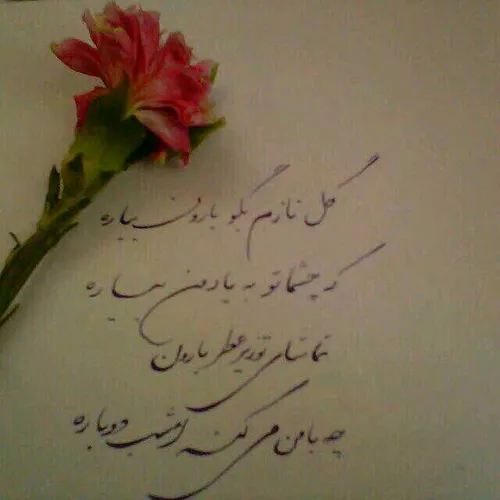 گل نازم بگو بارون بباره
که چشماتو به یاد من بیاره
تماشای تو زیر عطر بارون
چه با من می کنه امشب دوباره